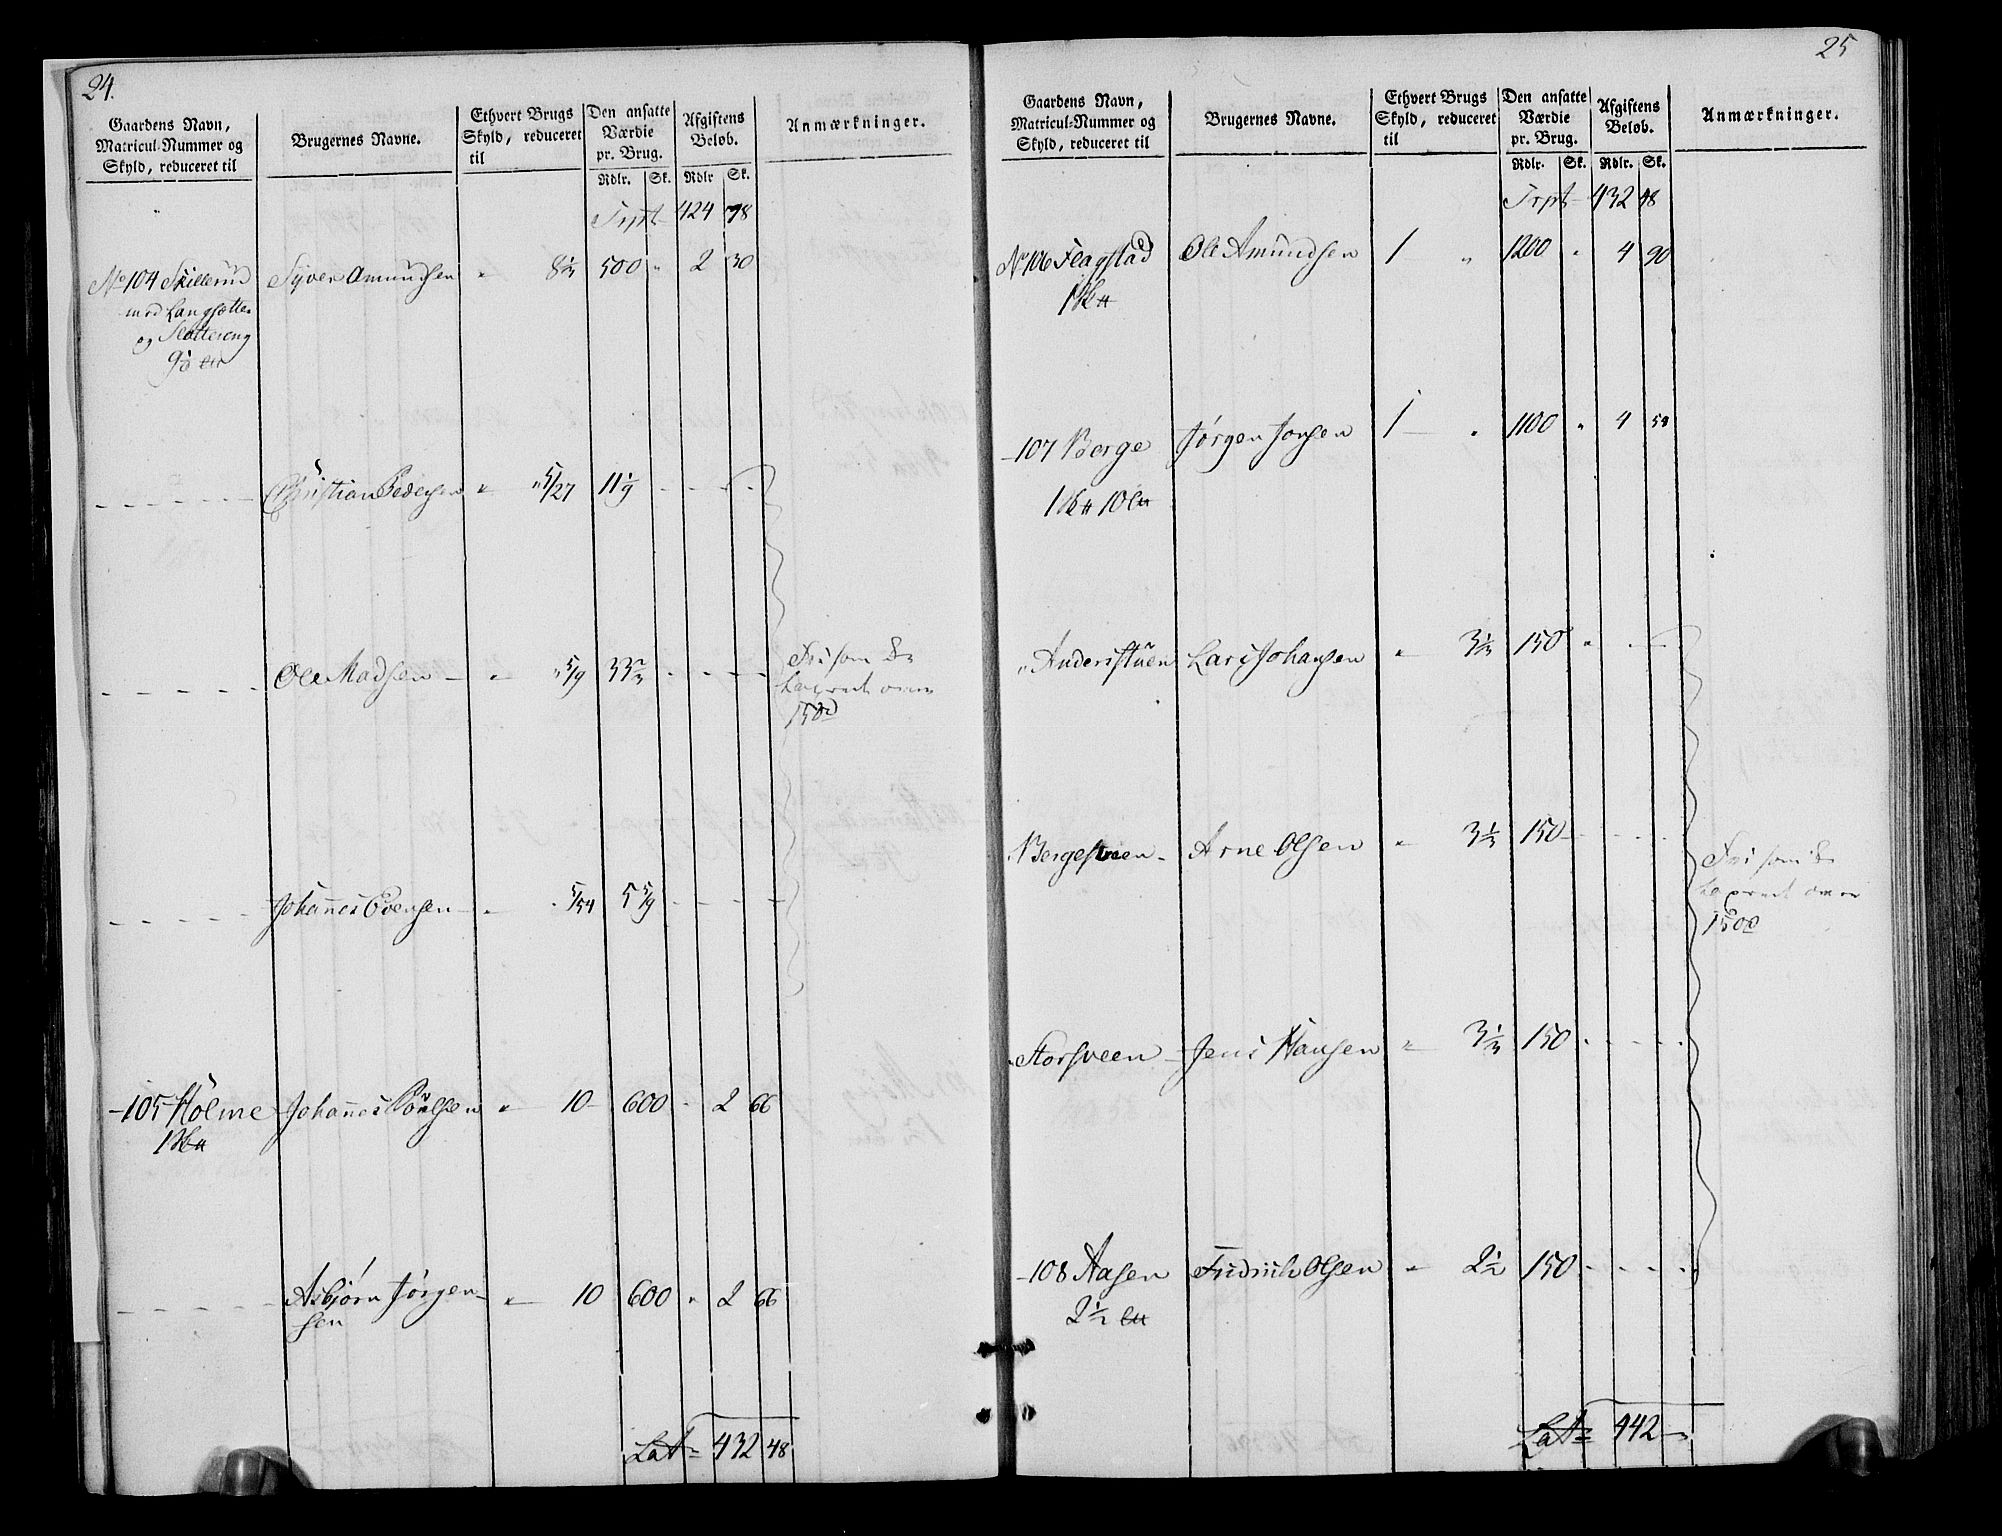 24.
Gaardens Navn,
Matricul-Nummer og
Skyld, reduceret til
Brugernes Navne.
Ethvert Brugs
Skyld, reduceret
til
Den ansatte
Værdie
pr. Brug.
Rdlr. Sk.
Afgiftens
Beløb.
Rdlr Sk.
Anmærkninger.
Trpt 424 78
No 104 Skillerud Syver Amundsen " 8 1/3 500 " 2 30
med Langsætte
og Slottereng
Christian Pedersen " " 5/27 11 1/9 - - -
Ole Madsen " " 5/9 33 1/3 - - - -
Fri som
over
150
Johannes Evensen " " 5/54 5 5/9 - - - -
- 105 Holme Johannes Povelsen " 10 600 - 2 66
Asbjørn Jørgen- " 10 600 " 2 66
sen
Lat 432 48
25
Gaardens Navn,
Matricul-Nummer og
Skyld, reduceret til
Brugernes Navne.
Ethvert Brugs
Skyld, reduceret
til
Den ansatte
Værdie
pr. Brug.
Rdlr. Sk.
Afgiftens
Beløb.
Rdlr. Sk.
Anmærkninger.
Trpt 432 48
No 106 Flagstad Ole Amundsen 1 " 1200 " 4 90
1
- 107 Berge Jørgen Jonsen 1 " 1100 " 4 54
1 10
" Anderistuen Lars Johansen " 3 1/3 150 " - -
" Bergesveen Arne Olsen " 3 1/3 150 - - - -
Fri som
over
150
" Storsveen Jens Hansen " 3 1/3 150 - - - -
- 108 Aasen Fridrich Olsen " 2 1/2 150 - - - -
2 1/2
Lat 442 -